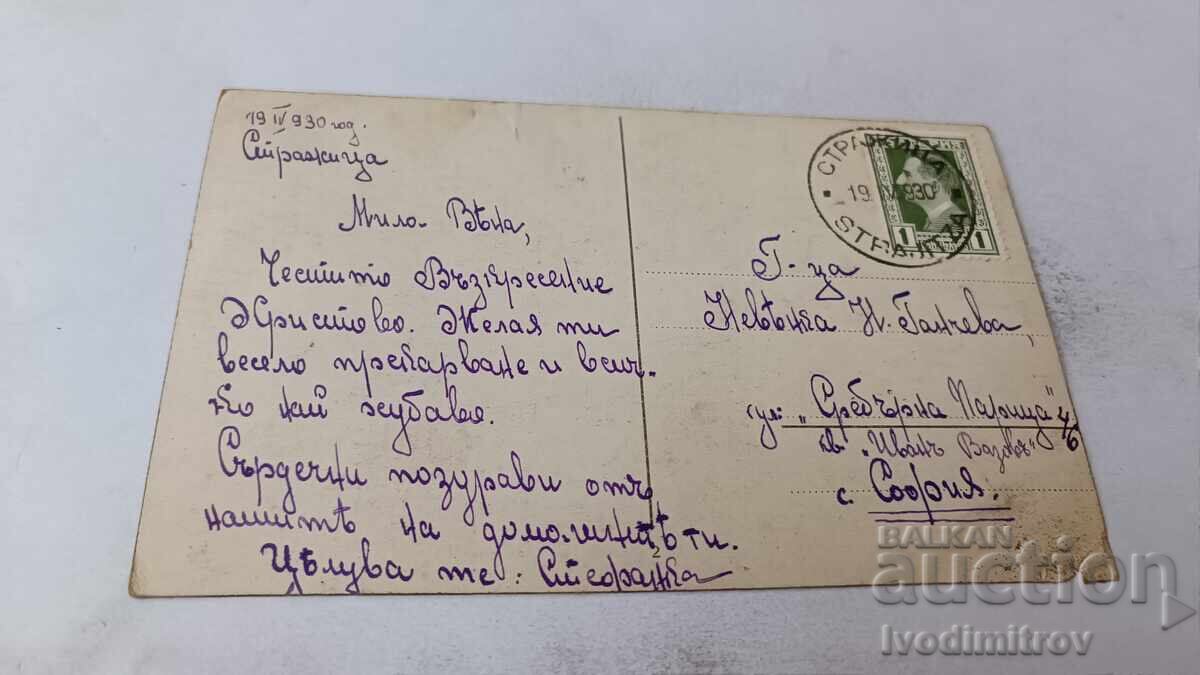 19 IV 930 год.
Стражица
Мила Вѣна,
Честито Възкресение
Христово. Желая ти
весело прекарване и всич-
ко най хубаво.
Сърдечни поздрави отъ
нашитѣ на домашнитѣ ти.
Цѣлува те: Стефанка
СТРАЖИЦА
19 IV 930
STRAJITZA
1 1
Г-ца
Невѣнка Н. Ганчева,
ул: „Сребърна Парица" 4/б
кв. „Иванъ Вазовъ"
с. София.
2
BALKAN
auction
Ivodimitrov